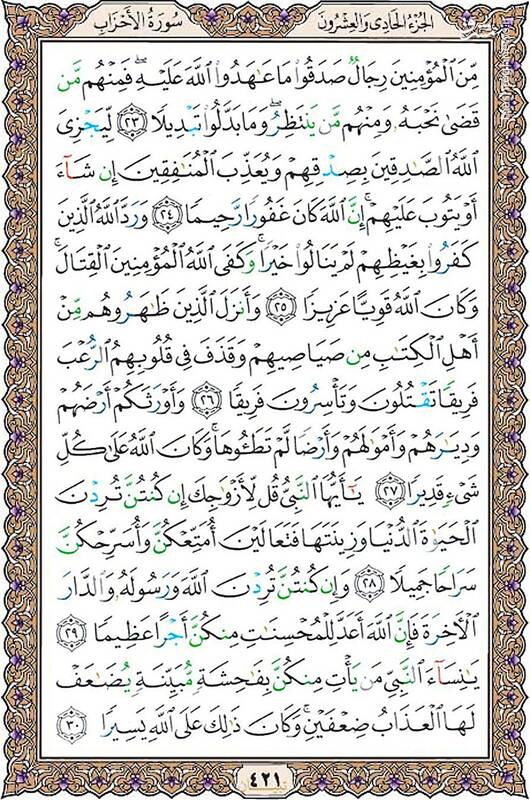 الجزء الحادى والعشرون
سورة الأحزاب
مِّنَ ٱلْمُؤْمِنِينَ رِجَالٌ صَدَقُوا۟ مَا عَـٰهَدُوا۟ ٱللَّهَ عَلَيْهِ ۖ فَمِنْهُم مَّن
قَضَىٰ نَحْبَهُۥ وَمِنْهُم مَّن يَنتَظِرُ ۖ وَمَا بَدَّلُوا۟ تَبْدِيلًا ٢٣ لِّيَجْزِىَ
ٱللَّهُ ٱلصَّـٰدِقِينَ بِصِدْقِهِمْ وَيُعَذِّبَ ٱلْمُنَـٰفِقِينَ إِن شَآءَ
أَوْ يَتُوبَ عَلَيْهِمْ ۚ إِنَّ ٱللَّهَ كَانَ غَفُورًا رَّحِيمًا ٢٤ وَرَدَّ ٱللَّهُ ٱلَّذِينَ
كَفَرُوا۟ بِغَيْظِهِمْ لَمْ يَنَالُوا۟ خَيْرًا ۚ وَكَفَى ٱللَّهُ ٱلْمُؤْمِنِينَ ٱلْقِتَالَ ۚ
وَكَانَ ٱللَّهُ قَوِيًّا عَزِيزًا ٢٥ وَأَنزَلَ ٱلَّذِينَ ظَـٰهَرُوهُم مِّنْ
أَهْلِ ٱلْكِتَـٰبِ مِن صَيَاصِيهِمْ وَقَذَفَ فِى قُلُوبِهِمُ ٱلرُّعْبَ
فَرِيقًا تَقْتُلُونَ وَتَأْسِرُونَ فَرِيقًا ٢٦ وَأَوْرَثَكُمْ أَرْضَهُمْ
وَدِيَـٰرَهُمْ وَأَمْوَٰلَهُمْ وَأَرْضًا لَّمْ تَطَـُٔوهَا ۚ وَكَانَ ٱللَّهُ عَلَىٰ كُلِّ
شَىْءٍ قَدِيرًا ٢٧ يَـٰٓأَيُّهَا ٱلنَّبِىُّ قُل لِّأَزْوَٰجِكَ إِن كُنتُنَّ تُرِدْنَ
ٱلْحَيَوٰةَ ٱلدُّنْيَا وَزِينَتَهَا فَتَعَالَيْنَ أُمَتِّعْكُنَّ وَأُسَرِّحْكُنَّ
سَرَاحًا جَمِيلًا ٢٨ وَإِن كُنتُنَّ تُرِدْنَ ٱللَّهَ وَرَسُولَهُۥ وَٱلدَّارَ
ٱلْـَٔاخِرَةَ فَإِنَّ ٱللَّهَ أَعَدَّ لِلْمُحْسِنَـٰتِ مِنكُنَّ أَجْرًا عَظِيمًا ٢٩
يَـٰنِسَآءَ ٱلنَّبِىِّ مَن يَأْتِ مِنكُنَّ بِفَـٰحِشَةٍ مُّبَيِّنَةٍ يُضَـٰعَفْ
لَهَا ٱلْعَذَابُ ضِعْفَيْنِ ۚ وَكَانَ ذَٰلِكَ عَلَى ٱللَّهِ يَسِيرًا ٣٠
٤٢١